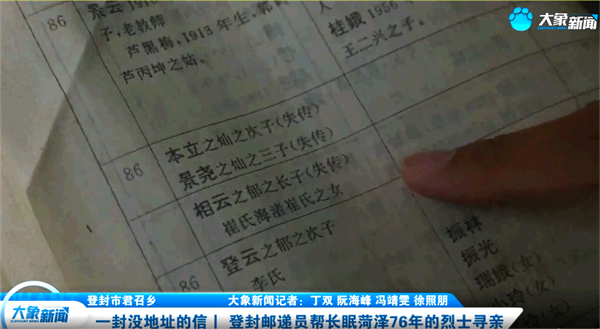 大象新闻
86
子,老教师
芦黑梅,1913年生,
芦丙坤之姑。
王二兴之子。
86
本立之灿之次子(失传)
景尧之灿之三子(失传)
相云之郁之长子(失传)
崔氏海渚崔氏之女
86
登云之郁之次子
李氏
振林
振光
登封市君召乡
大象新闻记者:丁双 阮海峰 冯靖雯 徐照朋
大象新闻
一封没地址的信丨 登封邮递员帮长眠菏泽76年的烈士寻亲